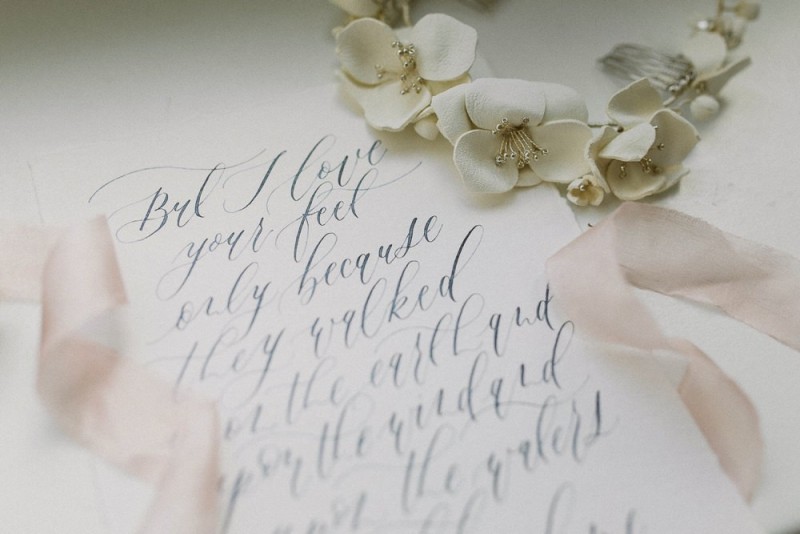 But I love
your feet
only because
they walked
on the earth and
upon the wind and
upon the waters